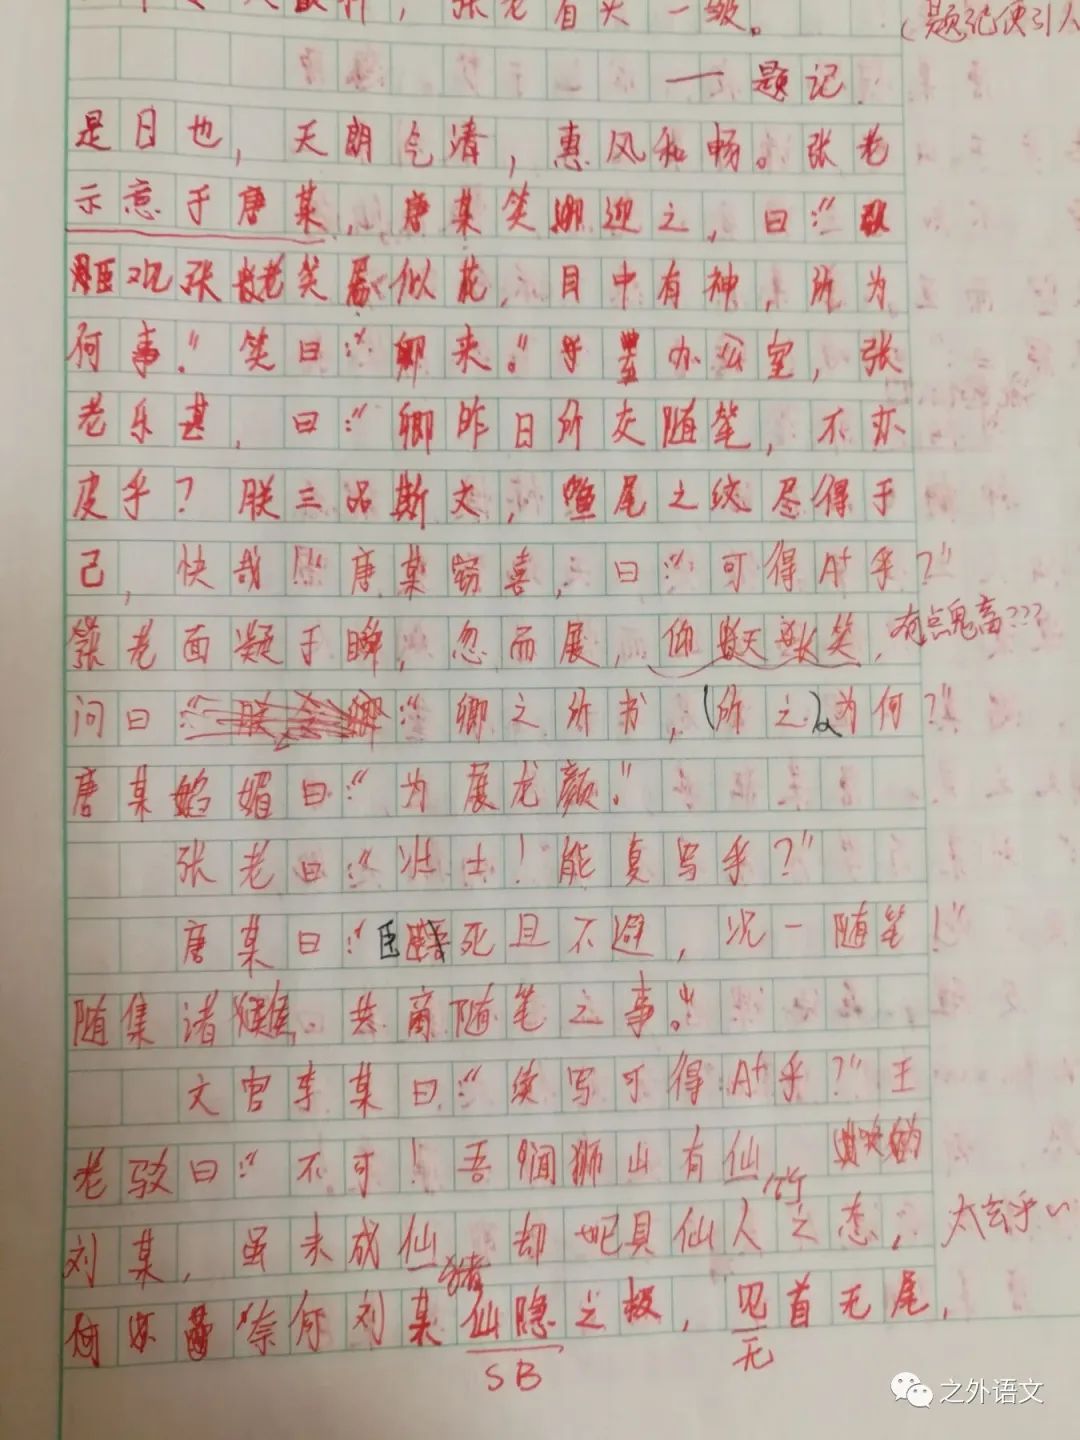 张老首夹一级。
(题记使引人
——题记
是日也，天朗气清，惠风和畅。张老
示意于唐某，唐某笑迎之，曰：“
观张老笑似花，目中有神，所为
何事。”笑曰：“卿来。”办公室，张
老乐甚，曰：“卿昨日所交随笔，不亦
皮乎？朕三品斯文，尾之纹尽得于
己，快哉！”唐某窃喜，曰：“可得A+乎？”
张老面凝于瞬，忽而展，仰天笑，
有点鬼畜???
问曰：“卿之所书，(所之)为何？”
唐某媚曰：“为展龙颜。”
张老曰：“壮士！能复写乎？”
唐某曰：“臣死且不避，况一随笔！”
随集诸侯，共商随笔之事。”
文官李某曰：“续写可得A+乎？”王
老驳曰：“不可！吾闻狮山有仙，
刘某，虽未成仙，却已具仙人之态，
竹
太玄乎~
猪
奈何刘某仙隐之极，见首无尾，
SB
无
之外语文